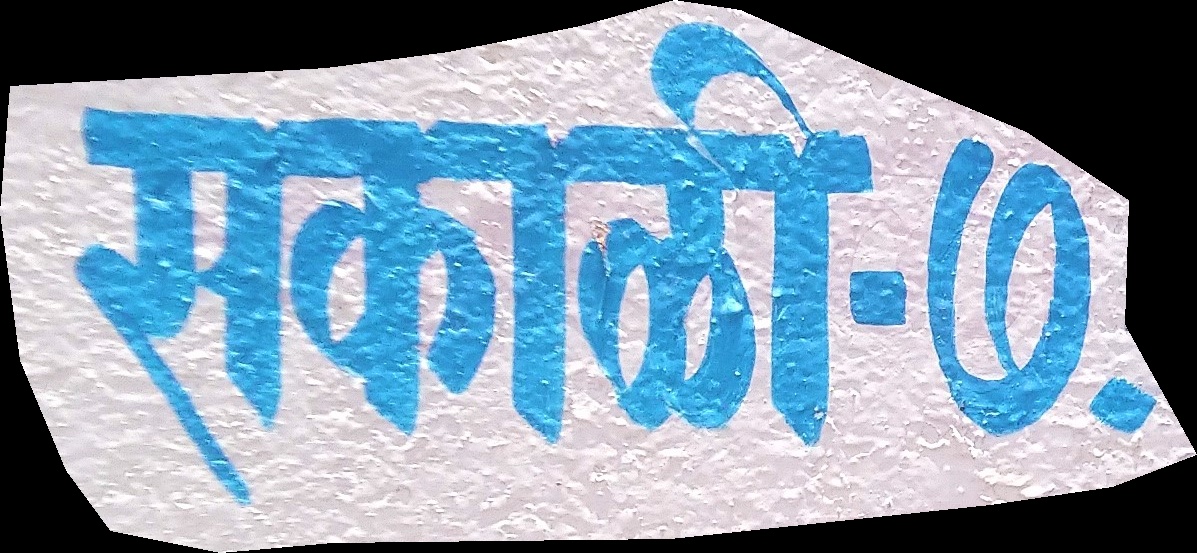 सकाळी-७.